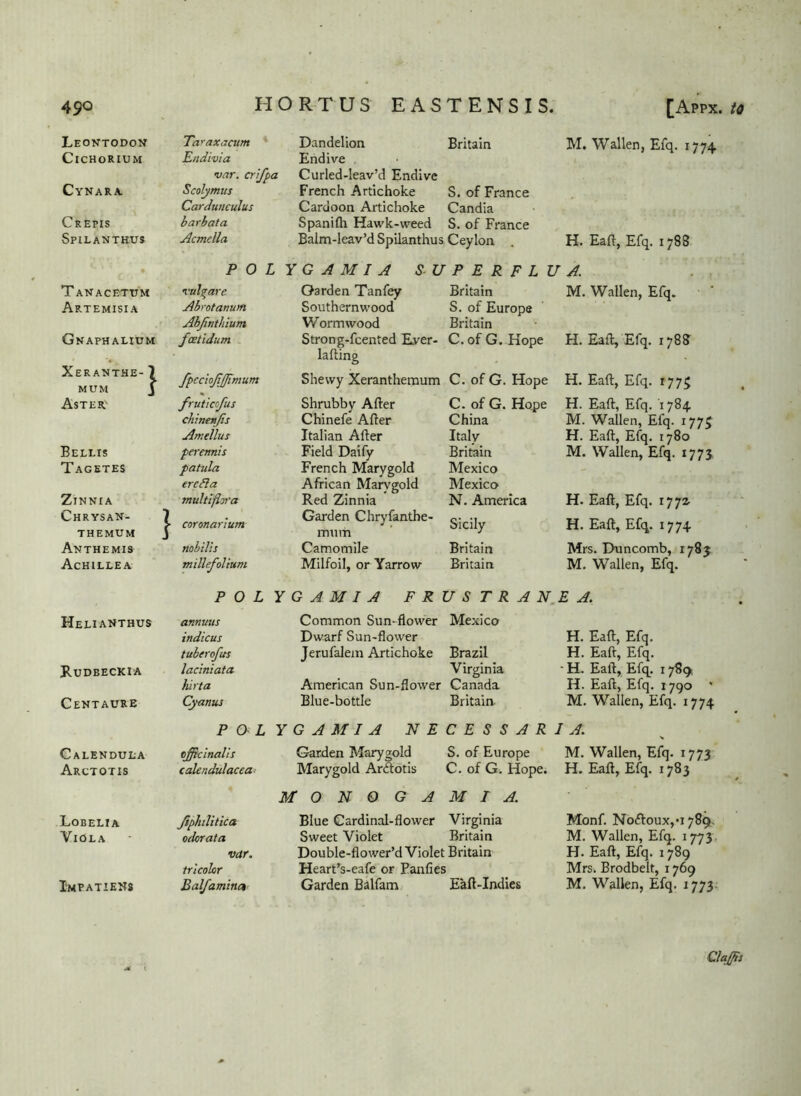 490 HORTUS EASTENSIS. [Appx. to
Leontodon Taraxacum Dandelion Britain M. Wallen, Eſq. 1774
Cichorium Endivia Endive
var. criſpa Curled-leav'd Endive
Cynara Scolymus French Artichoke S. of France
Cardunculus Cardoon Artichoke Candia
Crepis barbata Spaniſh Hawk-weed S. of France
Spilanthus Acmella Balm-leav'd Spilanthus Ceylon . H. Eaſt, Eſq. 1788
POLYGAMIA SUPERFLUA.
Tanacetum vulgare Garden Tanſey Britain M. Wallen, Eſq.
Artemisia Abrotanum Southernwood S. of Europe
Abſinthium Wormwood Britain
Gnaphalium fœtidum Strong-ſcented Ever- C. of G. Hope H. Eaſt, Eſq. 1788
laſting
Xeranthe-
mum } ſpecioſiſſimum Shewy Xeranthemum C. of G. Hope H. Eaſt, Eſq. 1775
Aster fruticoſus Shrubby After C. of G. Hope H. Eaſt, Eſq. 1784
chinenſis Chineſe After China M. Wallen, Eſq. 1775
Amellus Italian After Italy H. Eaſt, Eſq. 1780
Bellis perennis Field Daiſy Britain M. Wallen, Eſq. 1773
Tagetes patula French Marygold Mexico
erecta African Marygold Mexico
Zinnia multiflora Red Zinnia N. America H. Eaſt, Eſq. 1772
Chrysan-
themum } coronarium Garden Chryſanthe-
mum Sicily H. Eaſt, Eſq. 1774
Anthemis nobilis Camomile Britain Mrs. Duncomb, 1783
Achillea millefolium Milfoil, or Yarrow Britain M. Wallen, Eſq.
POLYGAMIA FRUSTRANEA.
Helianthus annuus Common Sun-flower Mexico
indicus Dwarf Sun-flower H. Eaſt, Eſq.
tuberoſus Jeruſalem Artichoke Brazil H. Eaſt, Eſq.
Rudbeckia laciniata Virginia H. Eaſt, Eſq. 1789
hirta American Sun-flower Canada H. Eaſt, Eſq. 1790
Centaure Cyanus Blue-bottle Britain M. Wallen, Eſq. 1774
POLYGAMIA NECESSARIA.
Calendula officinalis Garden Marygold S. of Europe M. Wallen, Eſq. 1773
Arctotis calendulacea Marygold Arctotis C. of G. Hope. H. Eaſt, Eſq. 1783
MONOGAMIA.
Lobelia ſiphilitica Blue Cardinal-flower Virginia Monſ. Noctoux, 1789
Viola odorata Sweet Violet Britain M. Wallen, Eſq. 1773
var. Double-flower'd Violet Britain H. Eaſt, Eſq. 1789
tricolor Heart's-eaſe or Panſies Mrs. Brodbelt, 1769
Impatiens Balſamina Garden Balſam Eaſt-Indies M. Wallen, Eſq. 1773
Claſſis